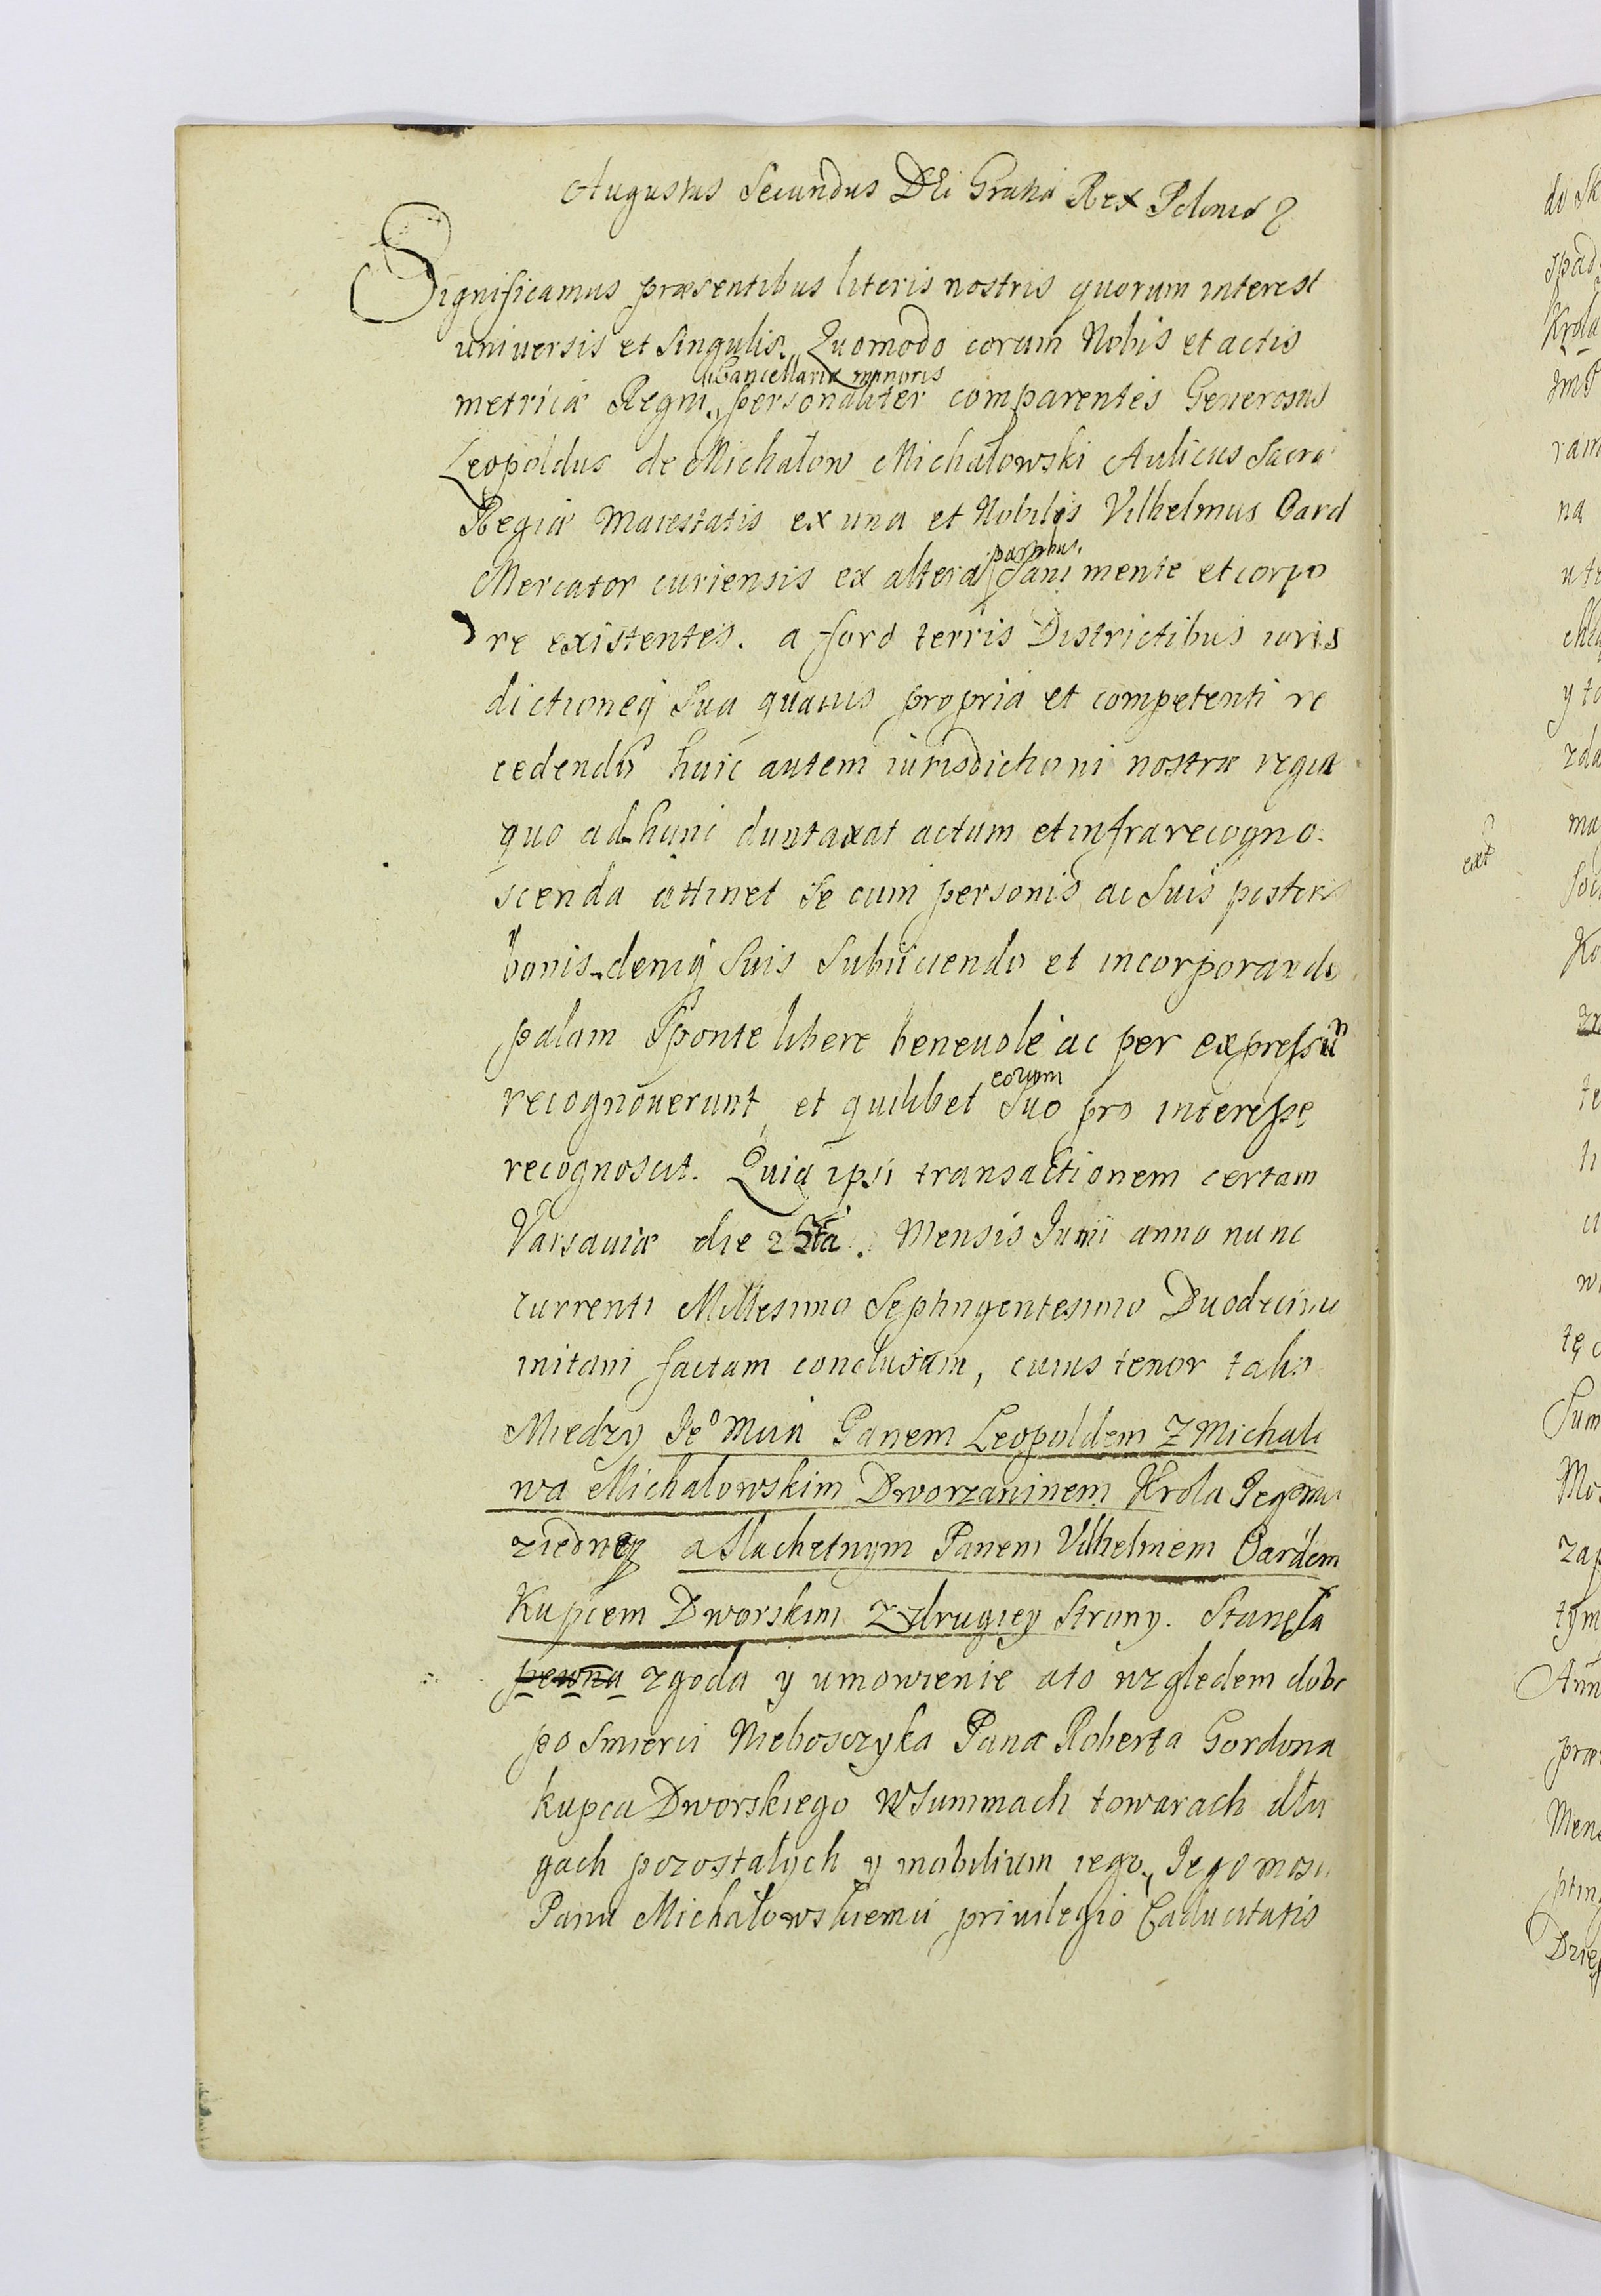 Augustus Secundus DEi Gratia Rex Poloniæ
Significamus præsentibus literis nostris quorum interest
universis et singulis. Quomodo coram Nobis et actis
Cancellariæ minoris
metricæ Regni personaliter comparentes Generosus
Leopoldus de Michałow Michałowski Aulicus Sacræ
Regiæ Maiestatis ex una et Nobilis Vilhelmus Oard
partibus.
Mercator curiensis ex altera Sani mente et corpo
re existentes. a foro terris Districtibus iuris
dictioneq sua quavis propria et competenti re
cedendo huic autem iurisdictioni nostræ regiæ
quo ad hunc duntaxat actum et infra recogno
scenda attinet se cum personis ac suis poster
bonis deniq suis subiiciendo et incorporando
palam sponte libere benevole ac per expressum
eorum
recognoverunt et quilibet suo pro interesse
recognoscit. Quia ipsi transactionem certam
Varsaviæ die 25ta. Mensis Junii anno nunc
currenti Millesimo Septingentesimo Duodecimo
initam factam conclusam, cuius tenor talis
Miedzy Jeo Mcią Panem Leopoldem Z Michało
wa Michałowskim Dworzaninem Krola Jegomci
ziedney a Slachetnym Panem Vilhelmem Oardem
Kupcem Dworskim z drugiey Strony. Stanęła
pewna zgoda y umowienie ato względem dobr
po Smierci Nieboszczyka Pana Roberta Gordona
kupca Dworskiego w Summach towarach dłu
gach pozostałych y mobilium iego, Jegomosci
Panu Michałowskiemu privilegio Caducitatis
ext